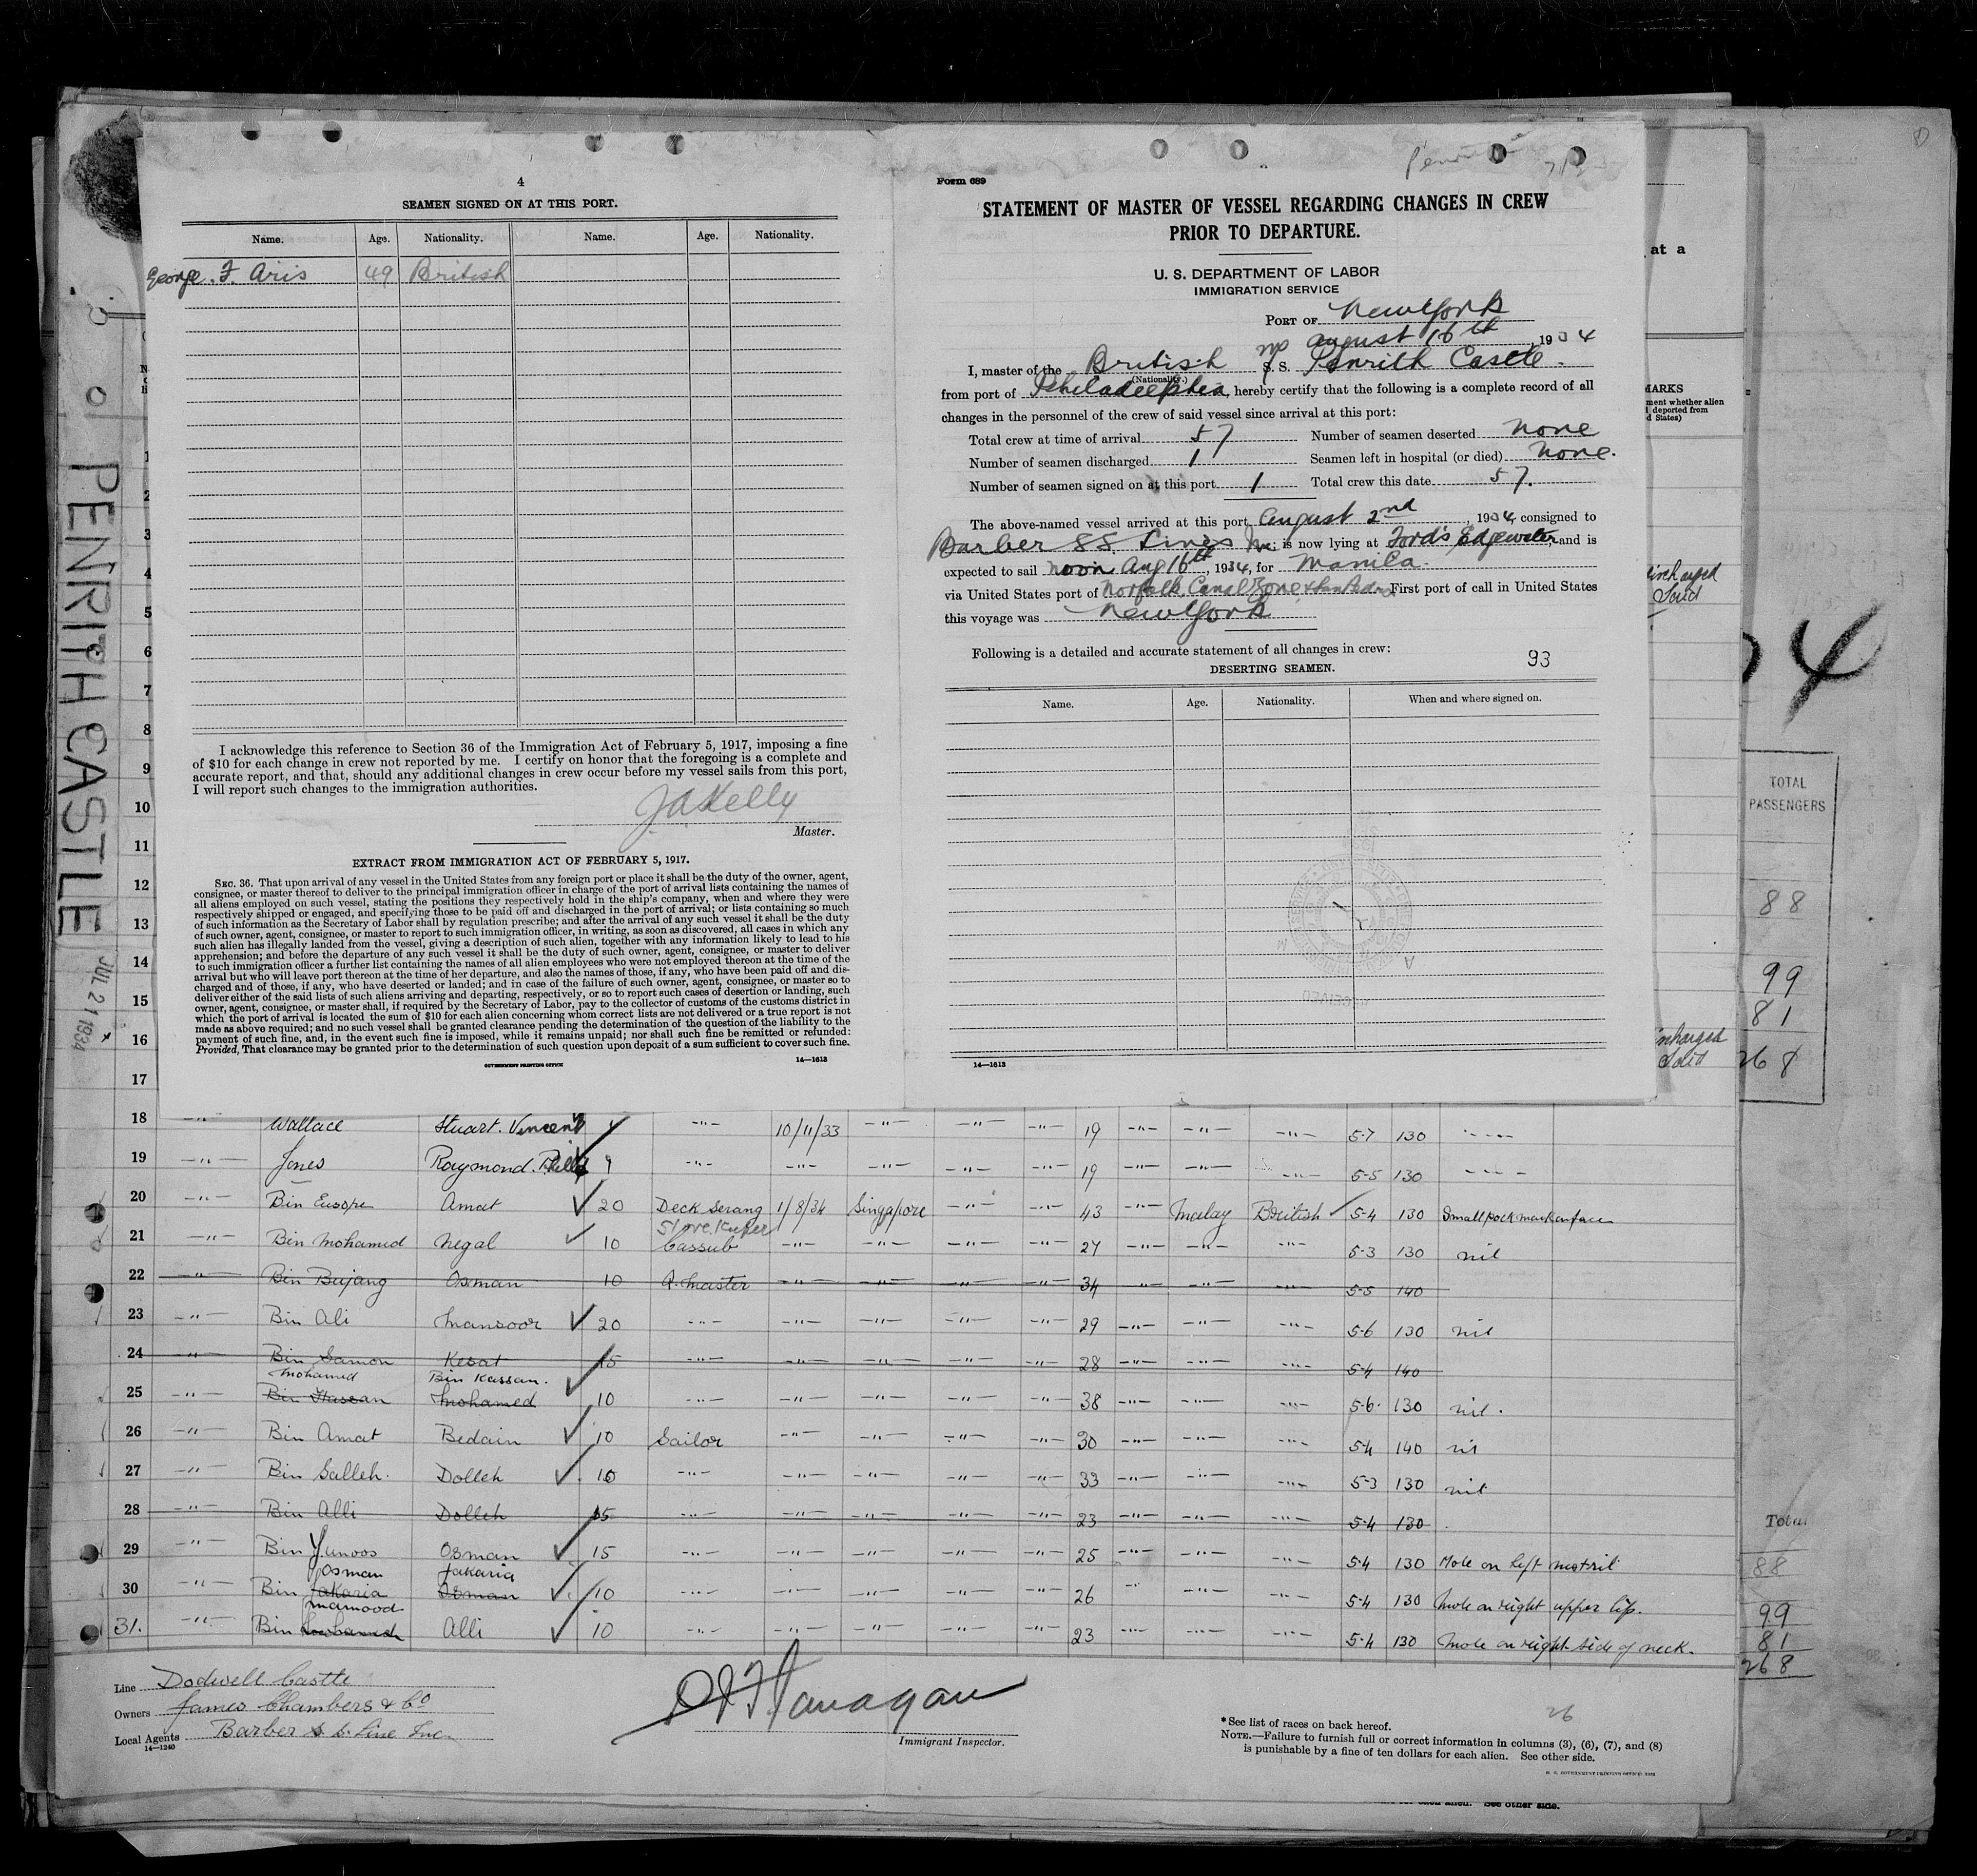 4
SEAMEN SIGNED ON AT THIS PORT.
Name. Age. Nationality. Name. Age. Nationality.
George. F. Aris 49 British
I acknowledge this reference to Section 36 of the Immigration Act of February 5, 1917, imposing a fine
of $10 for each change in crew not reported by me. I certify on honor that the foregoing is a complete and
accurate report, and that, should any additional changes in crew occur before my vessel sails from this port,
I will report such changes to the immigration authorities.
J.A Kelly
Master.
EXTRACT FROM IMMIGRATION ACT OF FEBRUARY 5, 1917.
SEC. 36. That upon arrival of any vessel in the United States from any foreign port or place it shall be the duty of the owner, agent,
consignee, or master thereof to deliver to the principal immigration officer in charge of the port of arrival lists containing the names of
all aliens employed on such vessel, stating the positions they respectively hold in the ship's company, when and where they were
respectively shipped or engaged, and specifying those to be paid off and discharged in the port of arrival; or lists containing so much
of such information as the Secretary of Labor shall by regulation prescribe; and after the arrival of any such vessel it shall be the duty
of such owner, agent, consignee, or master to report to such immigration officer, in writing, as soon as discovered, all cases in which any
such alien has illegally landed from the vessel, giving a description of such alien, together with any information likely to lead to his
apprehension; and before the departure of any such vessel it shall be the duty of such owner, agent, consignee, or master to deliver
to such immigration officer a further list containing the names of all alien employees who were not employed thereon at the time of the
arrival but who will leave port thereon at the time of her departure, and also the names of those, if any, who have been paid off and dis-
charged and of those, if any, who have deserted or landed; and in case of the failure of such owner, agent, consignee, or master so to
deliver either of the said lists of such aliens arriving and departing, respectively, or so to report such cases of desertion or landing, such
owner, agent, consignee, or master shall, if required by the Secretary of Labor, pay to the collector of customs of the customs district in
which the port of arrival is located the sum of $10 for each alien concerning whom correct lists are not delivered or a true report is not
made as above required; and no such vessel shall be granted clearance pending the determination of the question of the liability to the
payment of such fine, and, in the event such fine is imposed, while it remains unpaid; nor shall such fine be remitted or refunded:
Provided, That clearance may be granted prior to the determination of such question upon deposit of a sum sufficient to cover such fine.
GOVERNMENT PRINTING OFFICE 14—1613
Form 689
STATEMENT OF MASTER OF VESSEL REGARDING CHANGES IN CREW
PRIOR TO DEPARTURE.
U. S. DEPARTMENT OF LABOR
IMMIGRATION SERVICE
PORT OF New York
August 16th, 1934
I, master of the British S. S. Penrith Castle.
(Nationality.)
from port of Philadelphia, hereby certify that the following is a complete record of all
changes in the personnel of the crew of said vessel since arrival at this port:
Total crew at time of arrival 57 Number of seamen deserted none
Number of seamen discharged 1 Seamen left in hospital (or died) none.
Number of seamen signed on at this port 1 Total crew this date 57.
The above-named vessel arrived at this port August 2nd, 1934, consigned to
Barber SS Lines Inc; is now lying at Ford's Edgewater, and is
expected to sail noon Aug 16th, 1934, for Manila.
via United States port of Norfolk, Canal Zone & San Pedro First port of call in United States
this voyage was New York
Following is a detailed and accurate statement of all changes in crew:
93
DESERTING SEAMEN.
Name. Age. Nationality. When and where signed on.
14—1613
PENRITH CASTLE
JUL 21 1934
1
2
3
4
5
6
7
8
9
10
11
12
13
14
15
16
17
18 Wallace Stuart. Vincent 10/11/33 19 5-7 130
19 Jones Raymond. 19 5-5 130
20 Bin Europe Amat 20 Deck Serang 1/8/34 Singapore 43 Malay British 5-4 130 Small pock mark on face
Store Keeper
21 Bin Mohamed Negal 10 Cassub 27 5-3 130 nil
22 Bin Bujang Osman 10 Q. Master 34 5-5 140
23 Bin Ali Mansoor 20 29 5-6 130 nil
24 Bin Samon Kesat 15 28 5-4 140
Mohamed Bin Kassan.
25 Bin Hassan Mohamed 10 38 5-6 130 nil.
26 Bin Amat Bedain 10 Sailor 30 5-4 140 nil
27 Bin Salleh. Dolleh 10 33 5-3 130 nil
28 Bin Alli Dolleh 15 23 5-4 130
29 Bin Yunoos Osman 15 25 5-4 130 Mole on left nostril
Osman Jakaria
30 Bin Jakaria Osman 10 26 5-4 130 Mole on right upper lip.
Mamood
31. Bin Alli 10 23 5-4 130 Mole on right side of neck.
Line Dodwell Castle
Owners James Chambers & Co
Local Agents Barber S. S. Line Inc.
14—1240
Flanagan
Immigrant Inspector.
26
*See list of races on back hereof.
NOTE.—Failure to furnish full or correct information in columns (3), (6), (7), and (8)
is punishable by a fine of ten dollars for each alien. See other side.
See other side.
at a
MARKS
TOTAL
PASSENGERS
88
99
81
268
4
Total
88
99
81
268